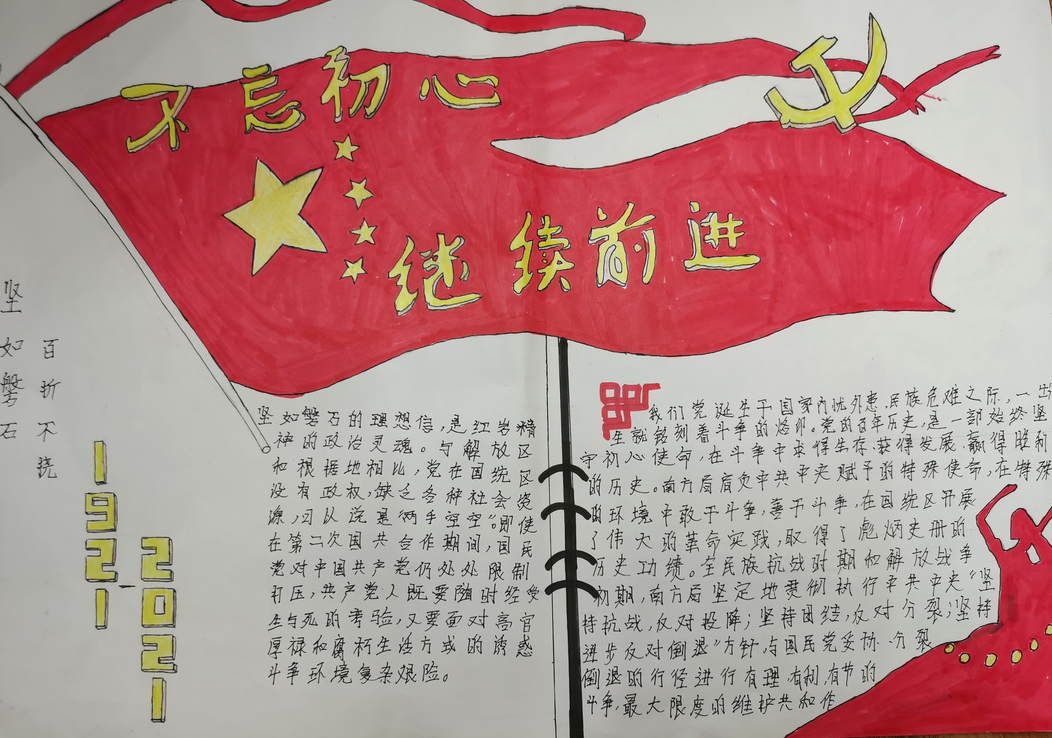 不忘初心
继续前进
坚如磐石
百折不挠
1921-2021
坚如磐石的理想信,是红岩精
神的政治灵魂。与解放区
和根据地相比,党在国统区
没有政权,缺乏各种社会资
源,可以说是“两手空空”。即使
在第二次国共合作期间,国民
党对中国共产党仍处处限制
打压,共产党人既要随时经受
生与死的考验,又要面对高官
厚禄和腐朽生活方式的诱惑
斗争环境复杂艰险。
我们党诞生于国家内忧外患、民族危难之际,一出
生就铭刻着斗争的烙印。党的百年历史,是一部始终坚
守初心使命,在斗争中求得生存、获得发展、赢得胜利
的历史。南方局肩负中共中央赋予的特殊使命,在特殊
的环境中敢于斗争,善于斗争,在国统区开展
了伟大的革命实践,取得了彪炳史册的
历史功绩。全民族抗战时期和解放战争
初期,南方局坚定地贯彻执行中共中央“坚
持抗战,反对投降;坚持团结,反对分裂;坚持
进步反对倒退”方针,与国民党妥协、分裂
倒退的行径进行有理、有利、有节的
斗争,最大限度的维护共和作